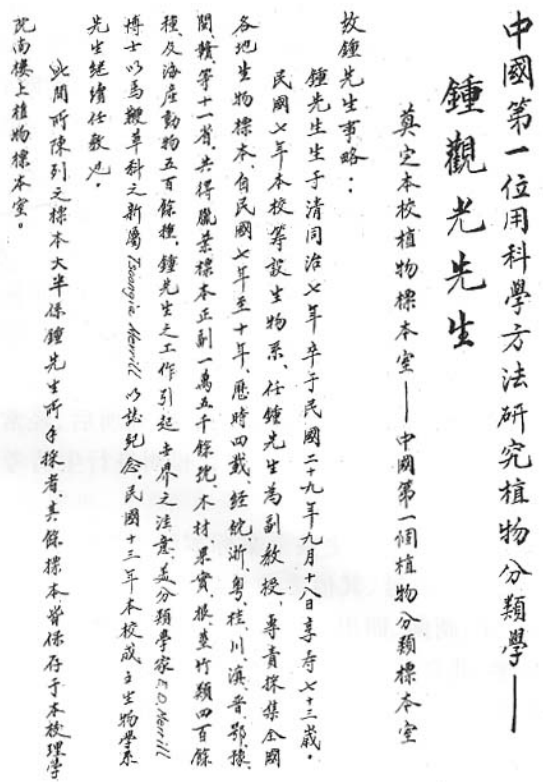 中國第一位用科學方法研究植物分類學——
鍾觀光先生
奠定本校植物標本室——中國第一個植物分類標本室
故鍾先生事略：
鍾先生生于清同治七年卒于民國二十九年九月十八日享寿七十三歲。
民國七年本校筹設生物系、任鍾先生為副教授、專責採集全國
各地生物標本、自民國七年至十年、歷時四載、経皖、浙、粤、桂、川、滇、晋、鄂、豫、
閩、贛、等十一省、共得臘葉標本正副一萬五千餘號、木材果實根莖竹類四百餘
種、及海産動物五百餘種、鍾先生之工作引起士界之注意、美分類學家E.D.Merrill
博士以馬鞭草科之新屬Tsoongia Merrill以誌紀念、民國十三年本校成立生物學系
先生継續任教也。
此間所陳列之標本大半係鍾先生所手採者其餘標本皆保存于本校理學
院南樓上植物標本室。